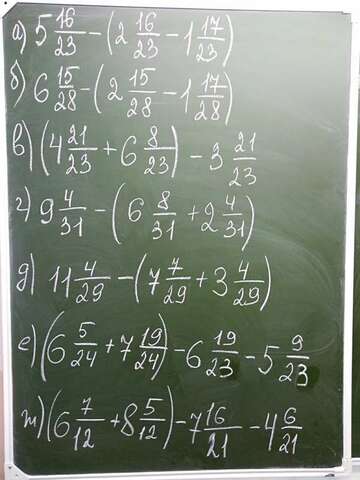 а) 5 16/23 − (2 16/23 − 1 17/23)
б) 6 15/28 − (2 15/28 − 1 17/28)
в) (4 21/23 + 6 8/23) − 3 21/23
г) 9 4/31 − (6 8/31 + 2 4/31)
д) 11 4/29 − (7 7/29 + 3 4/29)
е) (6 5/24 + 7 19/24) − 6 19/23 − 5 9/23
ж) (6 7/12 + 8 5/12) − 7 16/21 − 4 6/21